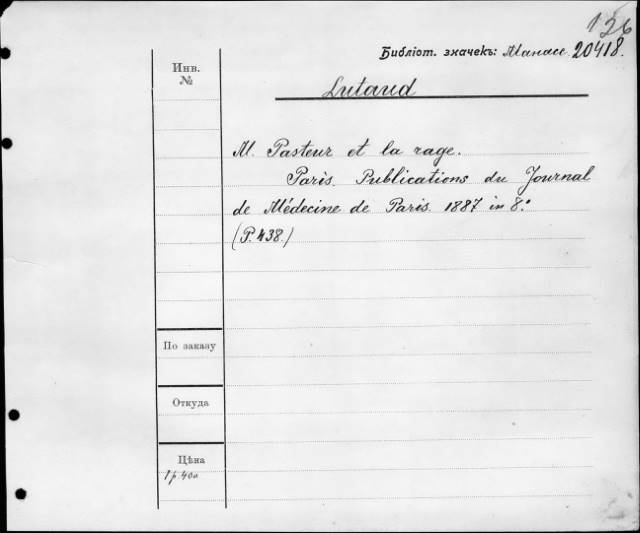 126
Библіот. значекъ: Манасс. 20418.
Инв.
№
Lutaud
M. Pasteur et la rage.
Paris. Publications du Journal
de Médecine de Paris. 1887 in 8.º
(P. 438.)
По заказу
Откуда
Цѣна
1 р. 40 к